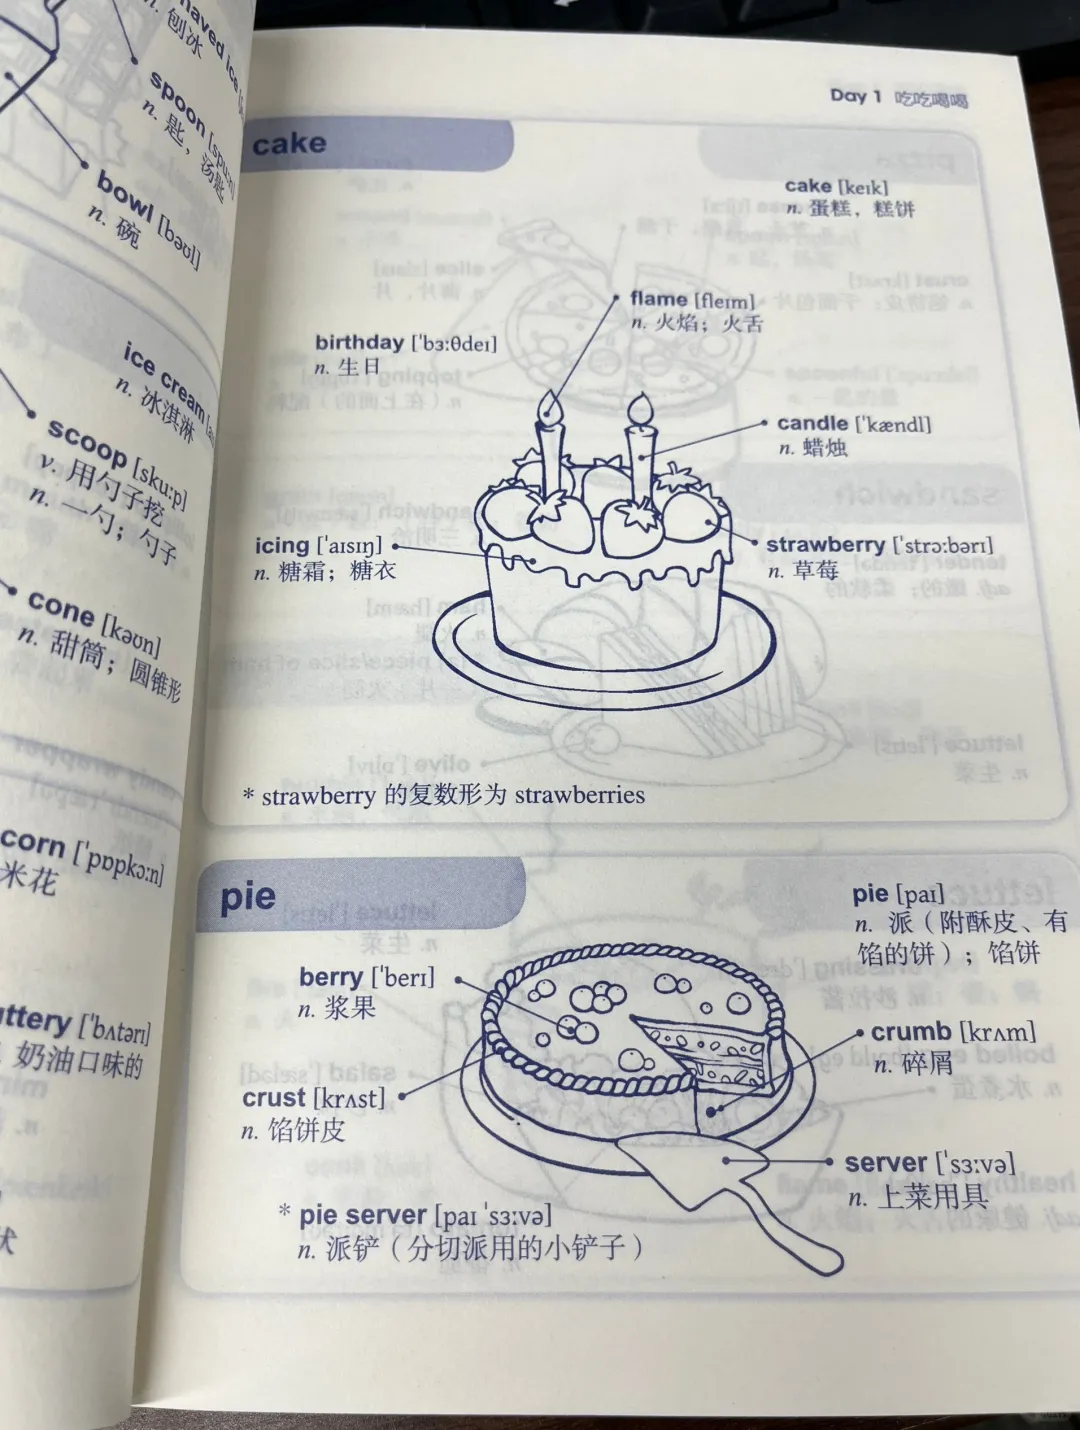 spoon [spuːn]
n. 匙，汤匙
bowl [bəʊl]
n. 碗
ice cream
n. 冰淇淋
scoop [skuːp]
v. 用勺子挖
n. 一勺；勺子
cone [kəʊn]
n. 甜筒；圆锥形
corn [ˈpɒpkɔːn]
米花
ttery [ˈbʌtərɪ]
奶油口味的
状
Day 1 吃吃喝喝
cake
cake [keɪk]
n. 蛋糕，糕饼
flame [fleɪm]
n. 火焰；火舌
birthday [ˈbɜːθdeɪ]
n. 生日
candle [ˈkændl]
n. 蜡烛
icing [ˈaɪsɪŋ]
n. 糖霜；糖衣
strawberry [ˈstrɔːbərɪ]
n. 草莓
* strawberry 的复数形为 strawberries
pie
pie [paɪ]
n. 派（附酥皮、有
馅的饼）；馅饼
berry [ˈberɪ]
n. 浆果
crumb [krʌm]
n. 碎屑
crust [krʌst]
n. 馅饼皮
server [ˈsɜːvə]
n. 上菜用具
* pie server [paɪ ˈsɜːvə]
n. 派铲（分切派用的小铲子）